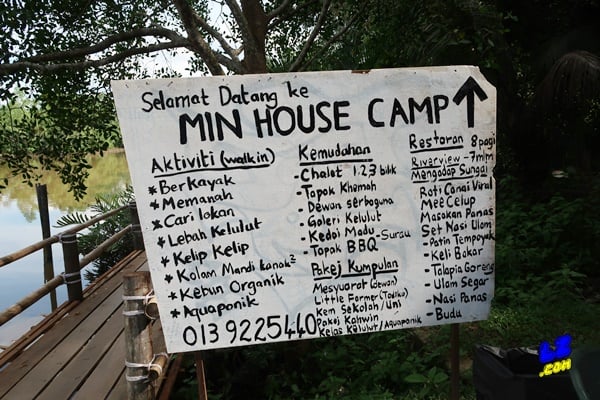 Selamat Datang ke
MIN HOUSE CAMP
Aktiviti (walk in)
* Berkayak
* Memanah
* Cari lokan
* Lebah Kelulut
* Kelip Kelip
* Kolam Mandi kanak²
* Kebun Organik
* Aquaponik
013 9225440
Kemudahan
- Chalet 1.2.3 bilik
- Tapak Khemah
- Dewan serbaguna
- Galeri Kelulut
- Kedai Madu - Surau
- Tapak BBQ
Pakej Kumpulan
Mesyuarat (dewan)
Little Farmer (Tadika)
Kem Sekolah/Uni
Pakej Kahwin
Kelas Kelulut/Aquaponik
Restoran 8 pagi
Riverview - 7 mlm
Mengadap Sungai
Roti Canai Viral
Mee Celup
Masakan Panas
Set Nasi Ulam
- Patin Tempoyak
- Keli Bakar
- Talapia Goreng
- Ulam Segar
- Nasi Panas
- Budu
.com